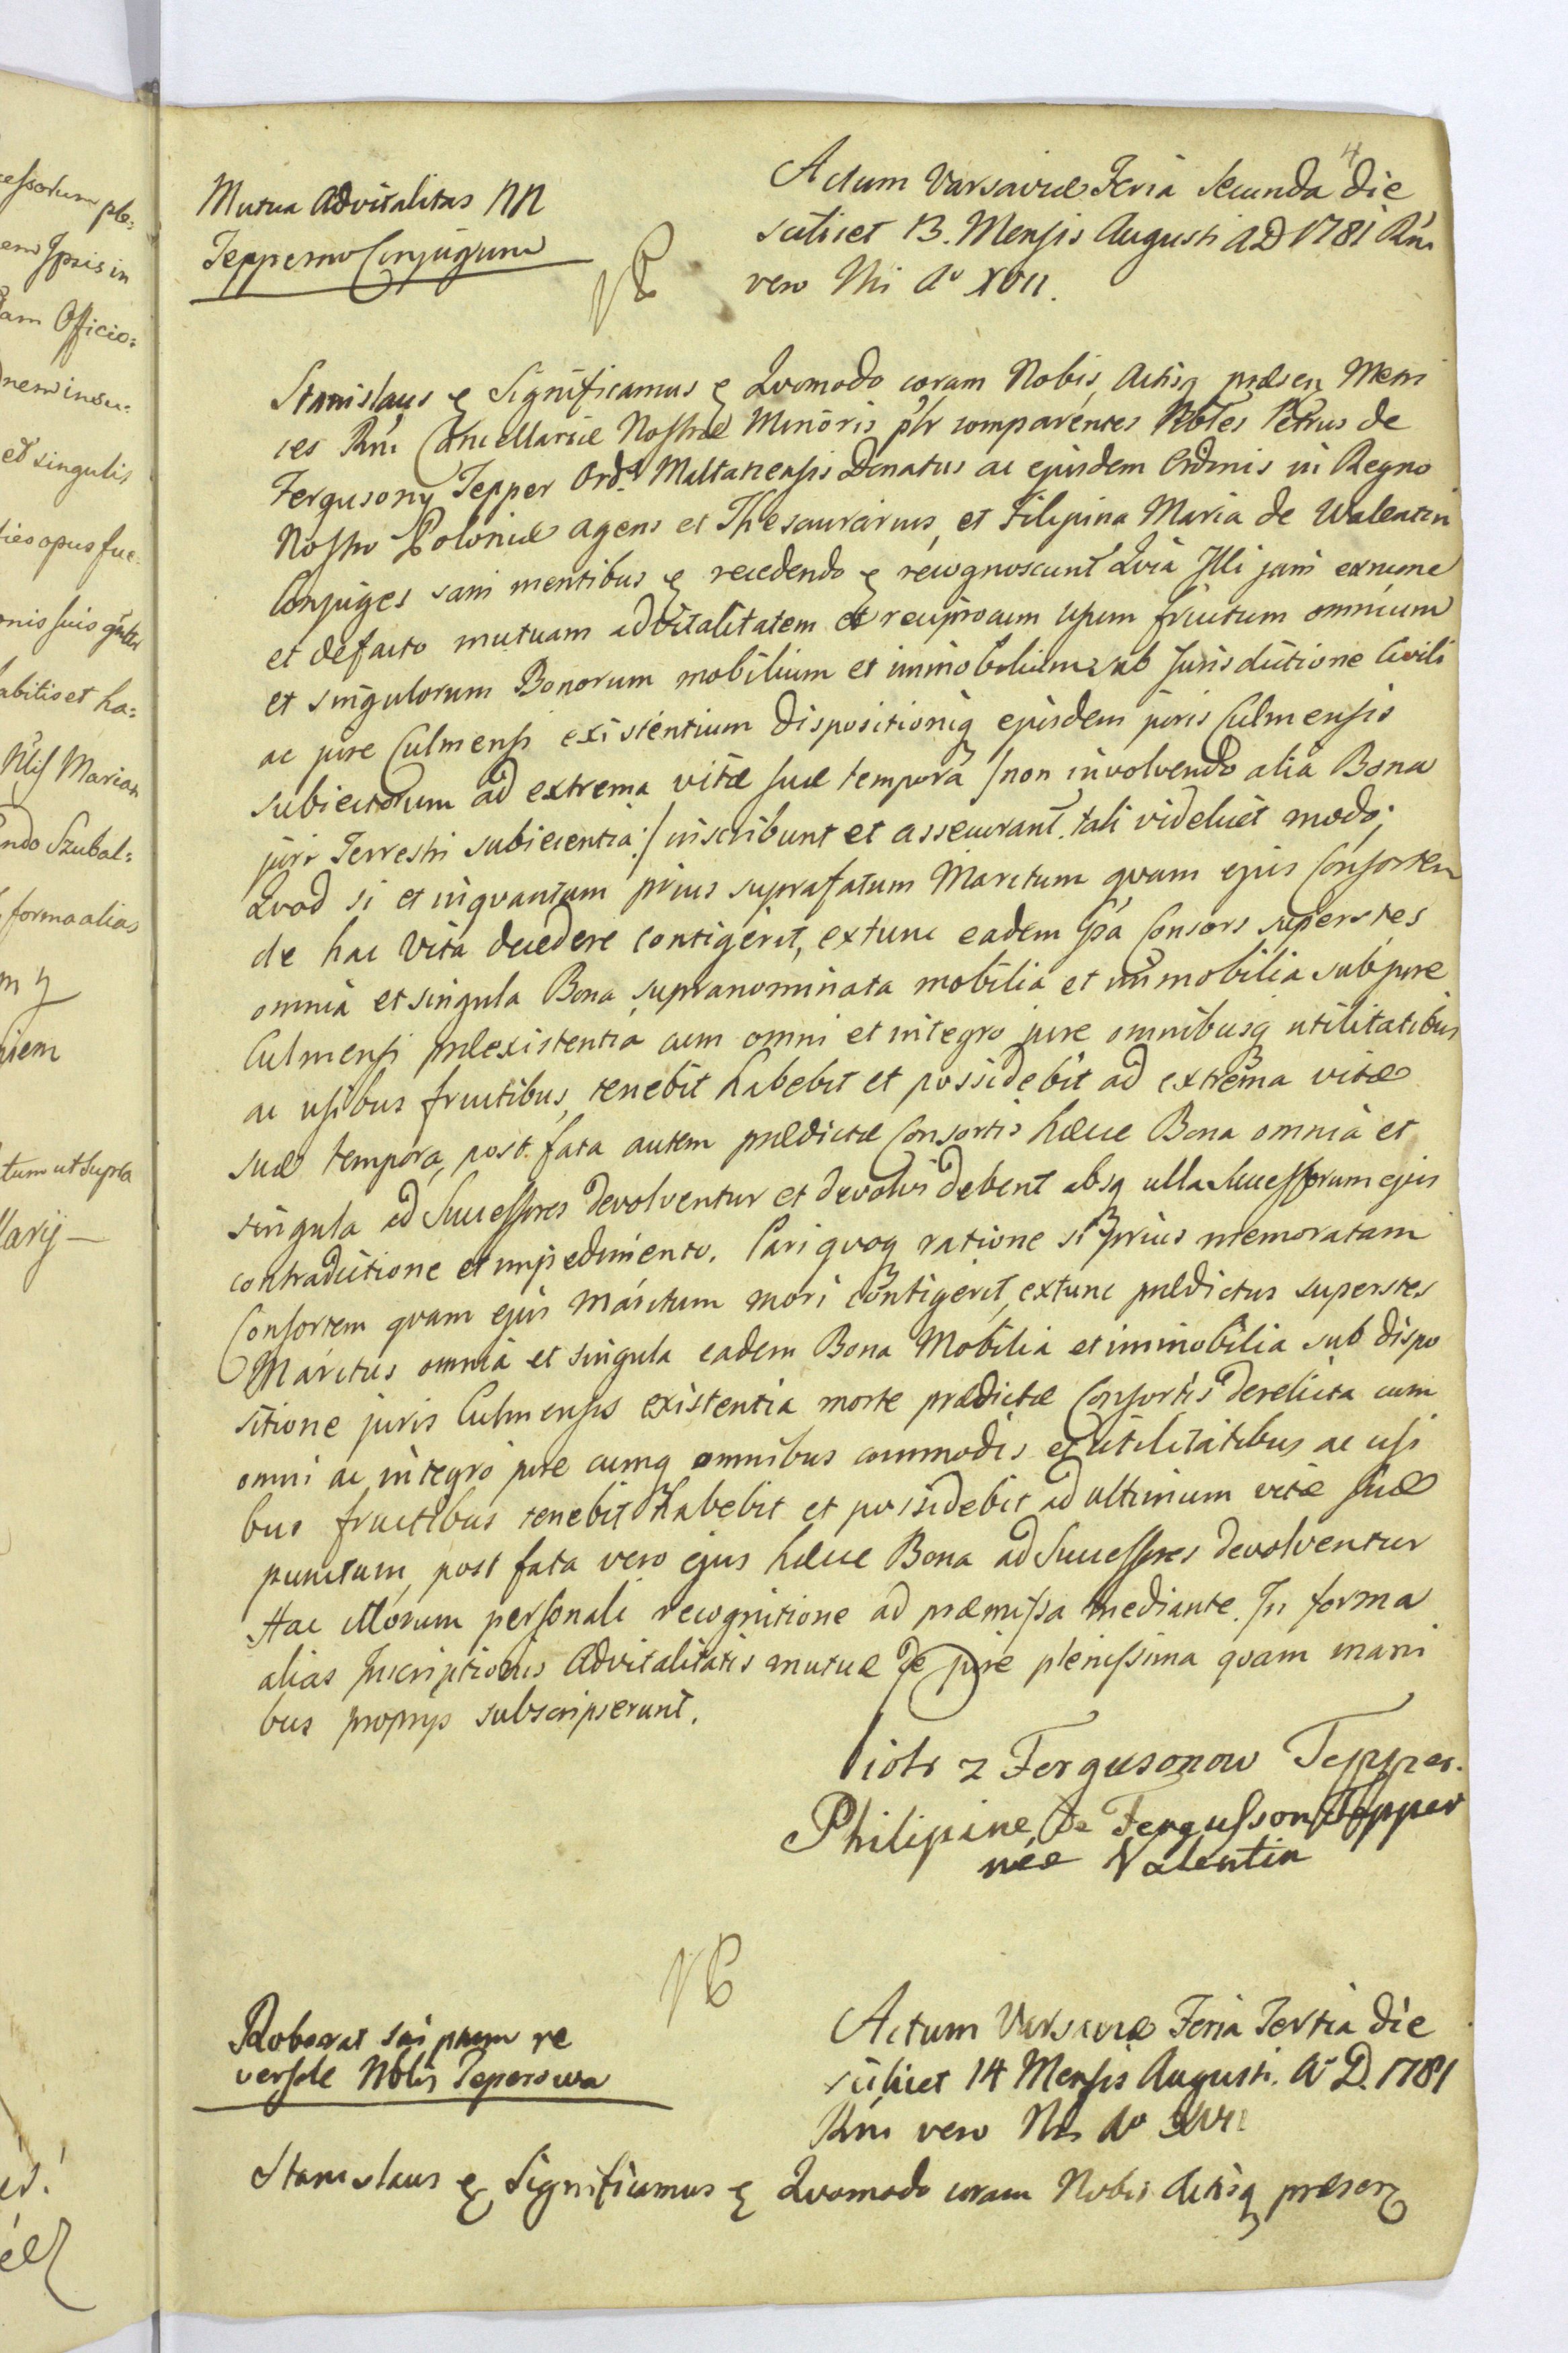 essorum ple:
em Ipsis in
dam Officio:
nem insu:
et singulis
ties opus fue
onis suis
abitis et ha:
Marian
ndo Szubal:
forma alias
niem
tum ut supra
larij —
4
Mutua Advitalitas NN
Tepperow Conjugum
Actum Varsaviæ Feria secunda die
scilicet 13. Mensis Augusti AD 1781 Rni
vero Nri Ao XVII.
Stanislaus & Significamus & Quomodo coram Nobis, Actisq præsen Metri
ces Rni Cancellariæ Nostræ Minoris pslr comparentes Nobles Petrus de
Fergusony Tepper Ords Maltatiensis Donatus ac ejusdem Ordinis in Regno
Nostro Poloniæ agens et Thesaurarius, et Filipina Maria de Walentin
Conjuges sani mentibus & recedendo & recognoscunt Quia Illi jam exnunc
et defacto mutuam advitalitatem et reciprocum usum fructum omnium
et singulorum Bonorum mobilium et immobilium sub Jurisdictione Civili
ac jure Culmensi existentium dispositioniq ejusdem juris Culmensis
subiectorum ad extrema vitæ suæ tempora /non involvendo alia Bona
juri Terrestri subiecentia:/ inscribunt et assecurant. tali videlicet modo;
Quod si et inquantum prius suprafatum Maritum quam ejus Consortem
de hac vita decedere contigerit, extunc eadem Ipsa Consors superstes
omnia et singula Bona supranominata mobilia et immobilia sub jure
Culmensi præexistentia cum omni et integro jure omnibusq utilitatibus
ac usibus fructibus, tenebit habebit et possidebit ad extrema vitæ
suæ tempora, post fata autem prædictæ Consortis hæcce Bona omnia et
singula ad Successores devolventur et devolvi debent absq ulla Successorum ejus
contradictione et impedimento. Pari quoq ratione si prius memoratam
Consortem quam ejus Maritum mori contigerit, extunc prædictus superstes
Maritus omnia et singula eadem Bona Mobilia et immobilia sub dispo
sitione juris Culmensis existentia morte prædictæ Consortis derelicta cum
omni ac integro jure cumq omnibus commodis et utilitatibus ac usi
bus fructibus tenebit habebit et possidebit ad ultimum vitæ suæ
punctum, post fata vero ejus hæcce Bona ad Successores devolventur
Hac illorum personali recognitione ad præmissa mediante. In forma
alias Inscriptionis Advitalitatis mutuæ de jure plenissima quam mani
bus proprijs subscripserunt.
Piotr z Fergusonow Tepper.
Philipine de Fergusson Tepper
née Valentin
Roborat
versale Noblis Teperowa
Actum Varsaviæ Feria Tertia die
scilicet 14 Mensis Augusti. Ao D. 1781
Rni vero Nri Ao XVII
Stanislaus & Significamus & Quomodo coram Nobis Actisq præsen